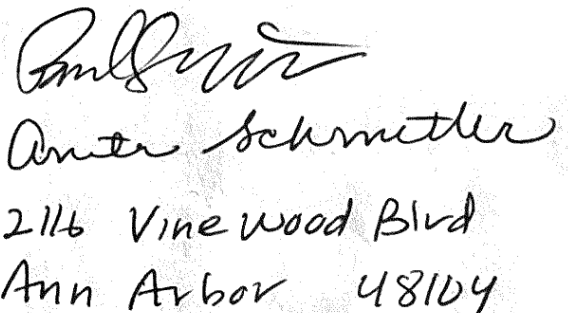 Paul
Anita Schmetler
2116 Vinewood Blvd
Ann Arbor 48104